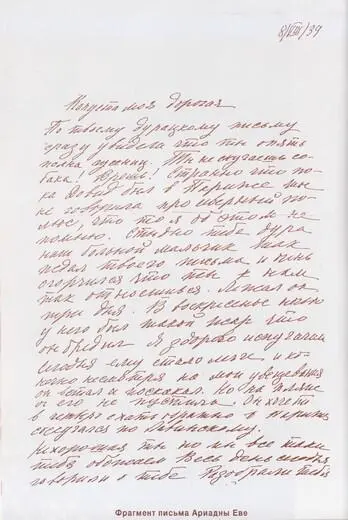 8/VIII/39
Капуста моя дорогая
По твоему дурацкому письму
сразу увидела что ты опять
полна гусениц. Ты не скучаешь со-
бака! Врешь! Странно что по-
ка Довид был в Париже ты
не говорила про северный по-
люс, что то я об этом не
помню. Стыдно тебе дура
наш больной мальчик так
ждал твоего письма и очень
огорчился что ты к нам
так относишься. Лежал он
три дня. В воскресенье ночью
у него был такой жар что
он бредил. Я здорово испугалась
сегодня ему стало легче и ко-
нечно несмотря на мои увещевания
он встал и поскакал. Но на пляже
я его не пустила. Он хочет
в четверг ехать обратно в Париж
соскучился по
Нехорошая ты но мы все таки
тебя обожаем Весь день сегодня
говорили о тебе Разобрали тебя
Фрагмент письма Ариадны Еве